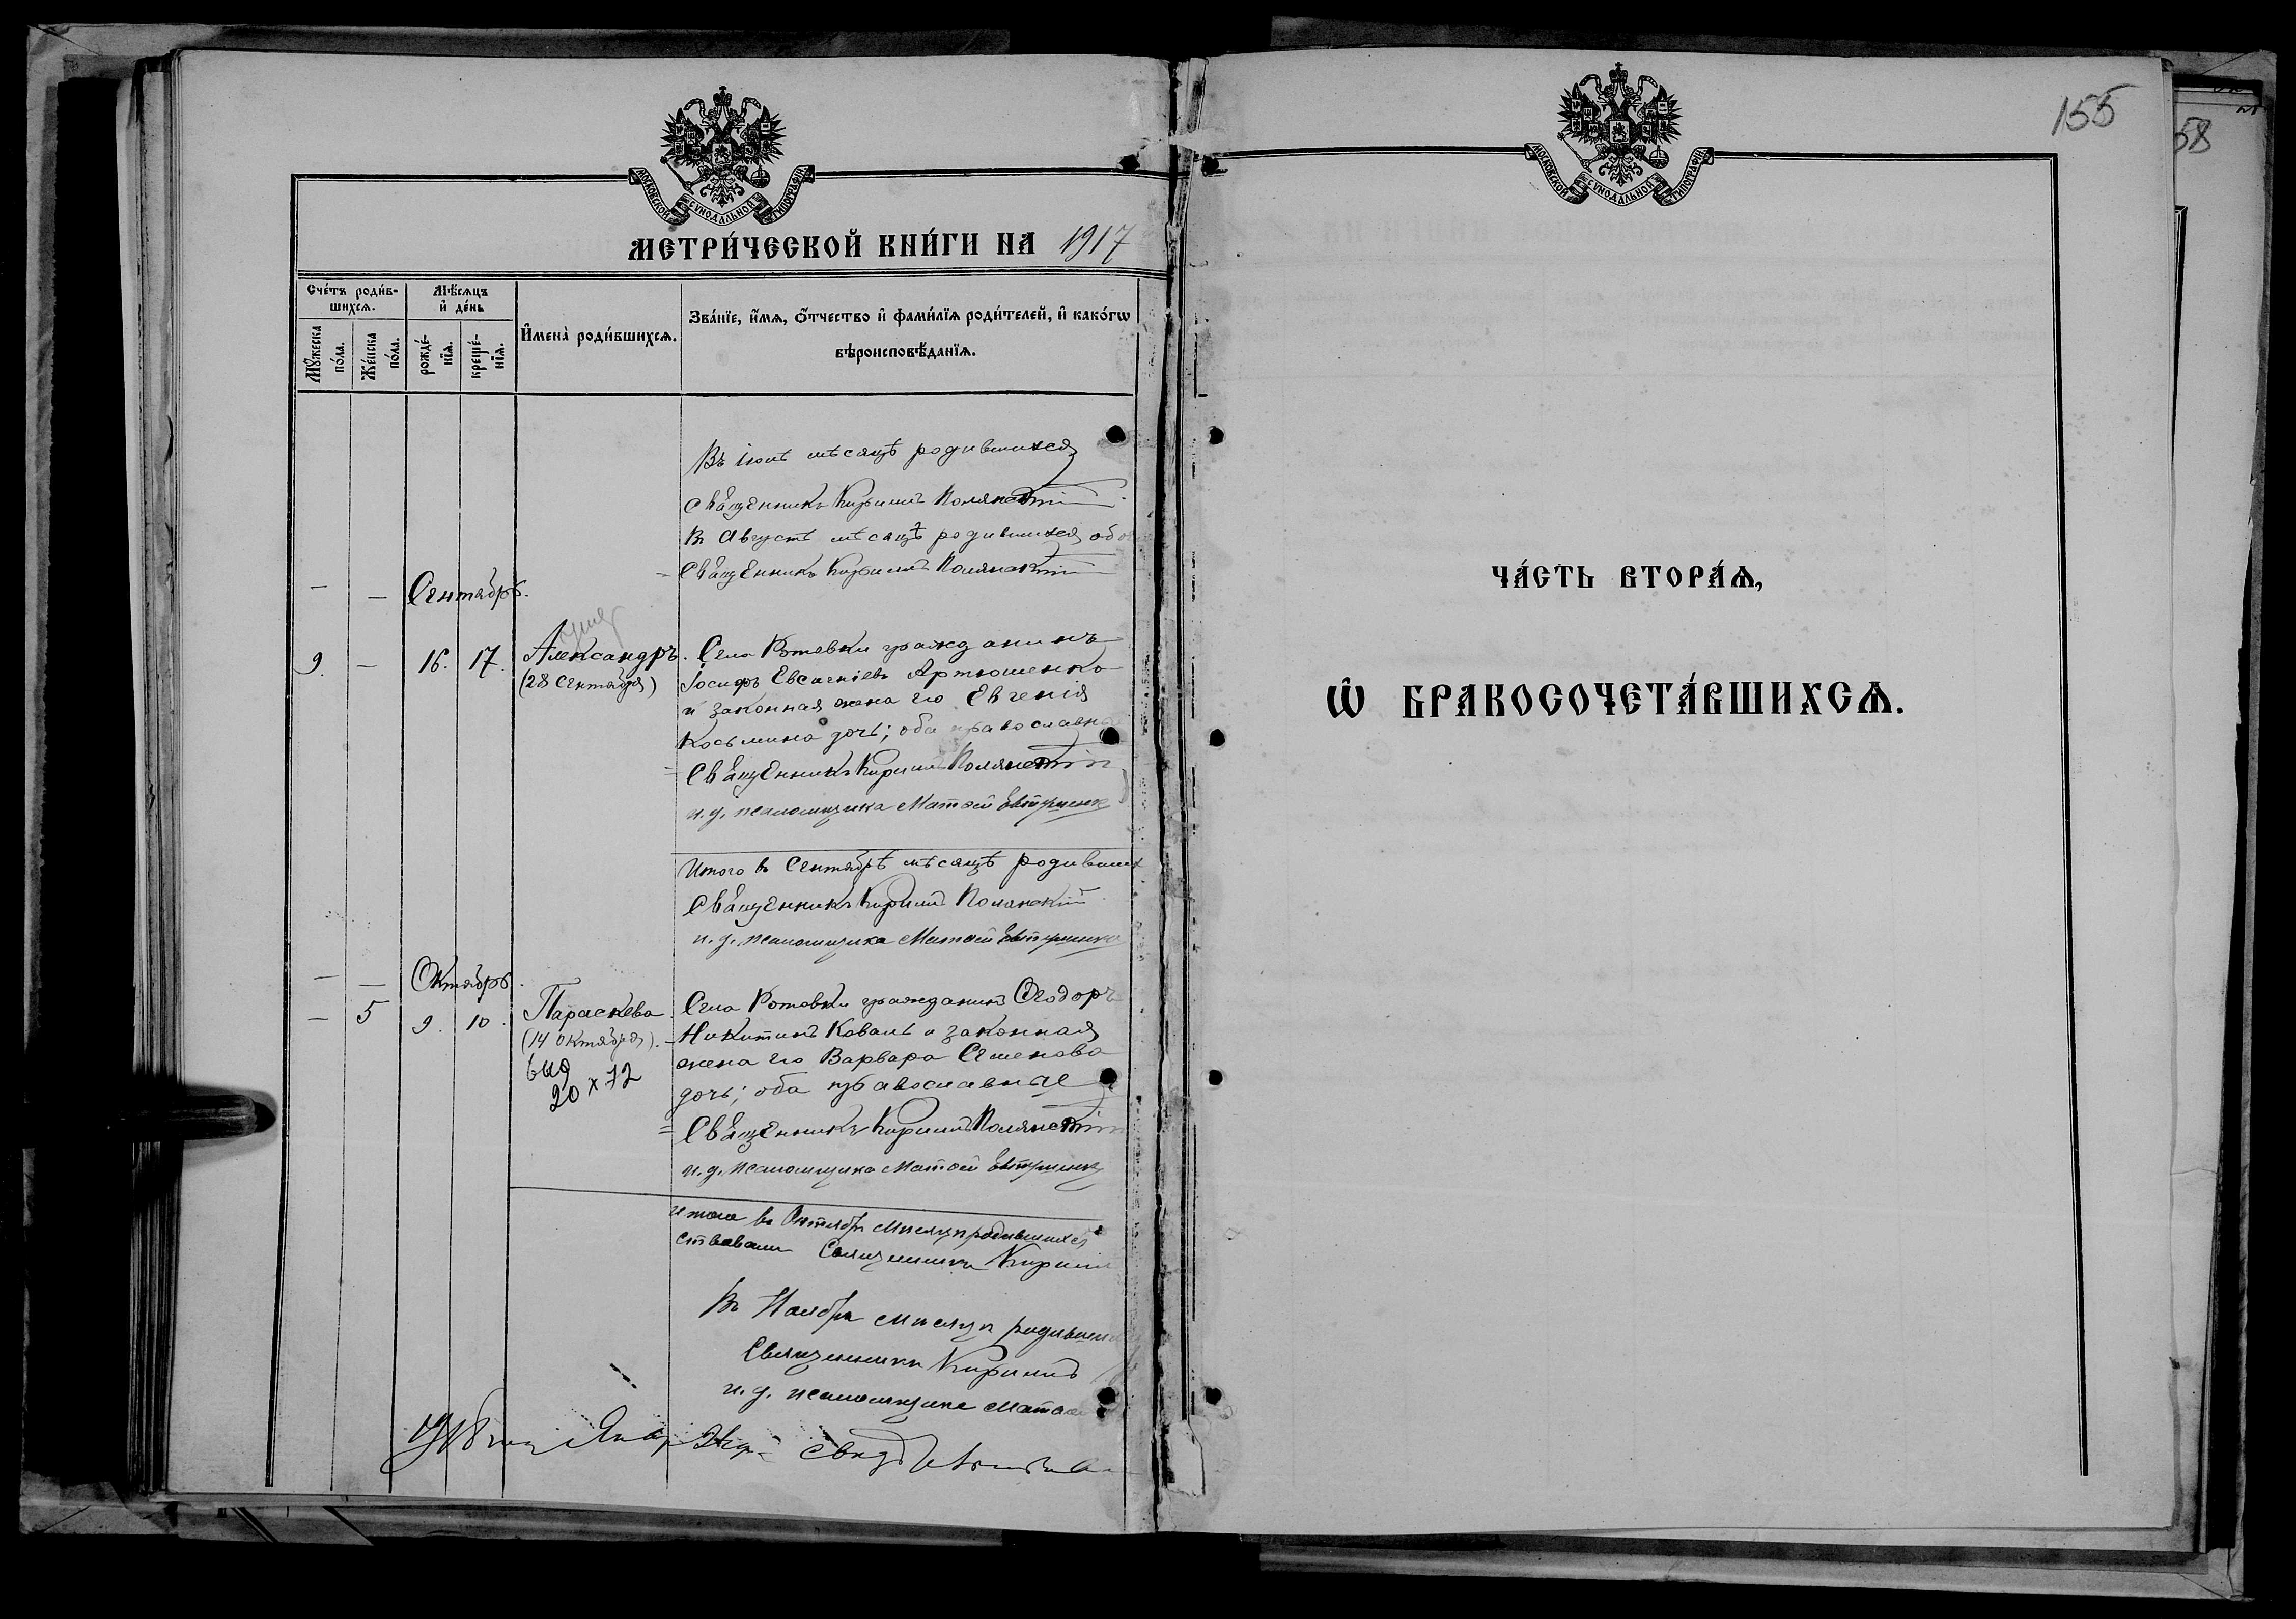 МОСКОВСКОЙ СѴНОДАЛЬНОЙ ТИПОГРАФІИ
МЕТРИ́ЧЕСКОЙ КНИ́ГИ НА 1917
Сче́тъ роди́в-
шихсѧ.
Мѣ́сѧцъ
и҆ де́нь
Мꙋ́жеска
по́ла.
Же́нска
по́ла.
рожде́-
нїѧ.
креще́-
нїѧ.
И҆мена̀ роди́вшихсѧ.
Зва́нїе, и҆́мѧ, ѻ҆́тчество и҆ фами́лїѧ роди́телей, и҆ како́гѡ
вѣроисповѣ́данїѧ.
Въ мѣсяцѣ родившихся
Священникъ Кириллъ Полянскій
В Августѣ мѣсяцѣ родившихся
Священникъ Кириллъ Полянскій
— — Сентябрь.
9. — 16. 17. Александръ.
(28 Сентября)
Села Ротовки гражданинъ
Іосифъ Евсигніевъ Артюшенко
и законная жена его Евгенія
Косьмина дочь; оба православн
Священникъ Кириллъ Полянскій
и. д. псаломщика Матѳей
Итого въ Сентябрѣ мѣсяцѣ родивших
Священникъ Кириллъ Полянскій
и. д. псаломщика Матѳей
— — Октябрь.
— 5 9. 10. Параскева.
(14 Октября).
20 X 72
Села Ротовки гражданинъ Ѳеодоръ
Никитинъ Коваль и законная
жена его Варвара Семенова
дочь; оба православные
Священникъ Кириллъ Полянскій
и. д. псаломщика Матѳей
Итого въ Октябрѣ мѣсяцѣ родившихся
Священникъ Кирилл
Въ Ноябрѣ мѣсяцѣ родивши
Священникъ Кириллъ
и. д. псаломщика Матѳей
155
58
МОСКОВСКОЙ СѴНОДАЛЬНОЙ ТИПОГРАФІИ
ЧА́СТЬ ВТОРА́Ѧ,
Ѡ҆ БРАКОСОЧЕТА́ВШИХСѦ.